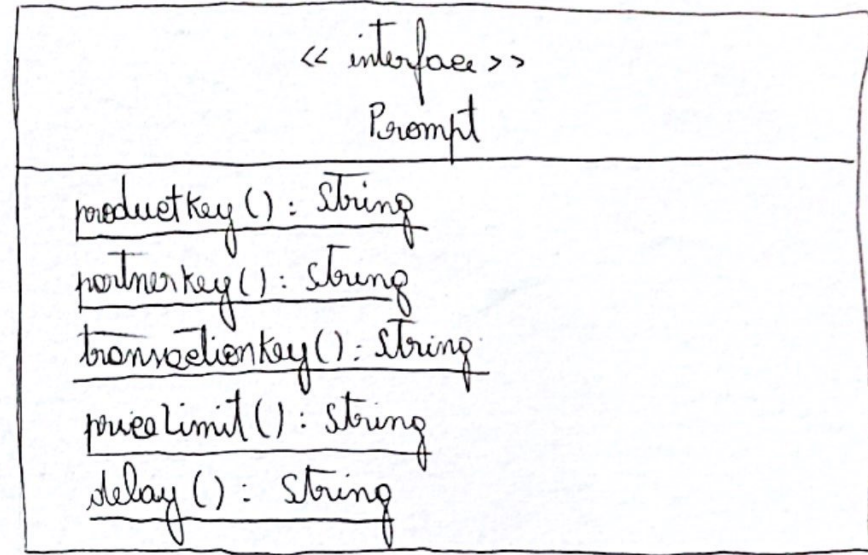 << interface >>
Prompt
productKey() : String
partnerKey() : String
transactionKey() : String
priceLimit() : String
delay() : String